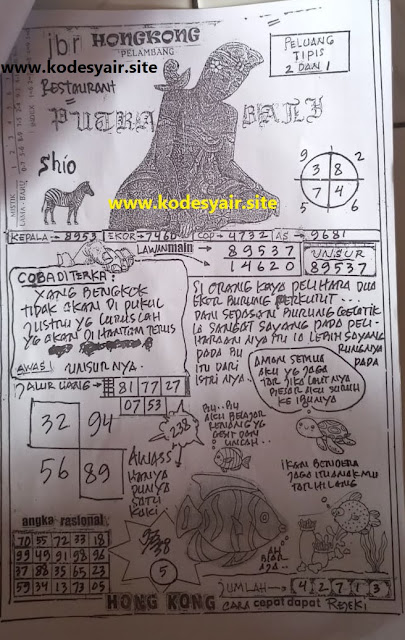 jbr HONGKONG
PELAMBANG
www.kodesyair.site
RESTAURANT
PUTRA BALI
PELUANG
TIPIS
2 DAN 1
Shio
www.kodesyair.site
9 3 8 2
7 4
5 6
KEPALA = 8953 EKOR = 7460 COP = 4732 AS = 9681
LAWAN main → 89537
→ 14620
UNSUR
89537
COBA DI TERKA :
YANG BENGKOK
TIDAK AKAN DI PUKUL
JUSTRU YG LURUSLAH
YG AKAN DI HANTAM TERUS
AWAS! UNSURNYA.
SI ORANG KAYA PELIHARA DUA
EKOR BURUNG PERKUTUT...
DAN SEPASANG BURUNG GELATIK
IA SANGAT SAYANG PADA PELI-
HARAAN NYA ITU IA LEBIH SAYANG
PADA BU RUNGNYA
ITU DARI PADA
ISTRI NYA.
JALUR UANG =
81 77 27
07 53
32 94
56 89
238
AWASS
HANYA
PUNYA
SATU
KAKI
BU.. BU
AKU BELAJAR
RENANG YG
GESIT DARI
UNCAH...
AMAN SEMUA
AKU YG JAGA
TAR JIKA LAUTNYA
BESAR AKU SURUH
KE IBUNYA
IKAN BENDERA
JAGA ITU ANAKMU
TAR HILANG
AH
BIAR
AJA..
angka rasional
70 55 72 33 18
99 49 91 98 26
37 88 35 65 23
59 34 13 73 05
5
JUMLAH → 4 2 7 1 3
HONG KONG CARA cepat dapat REJEKI